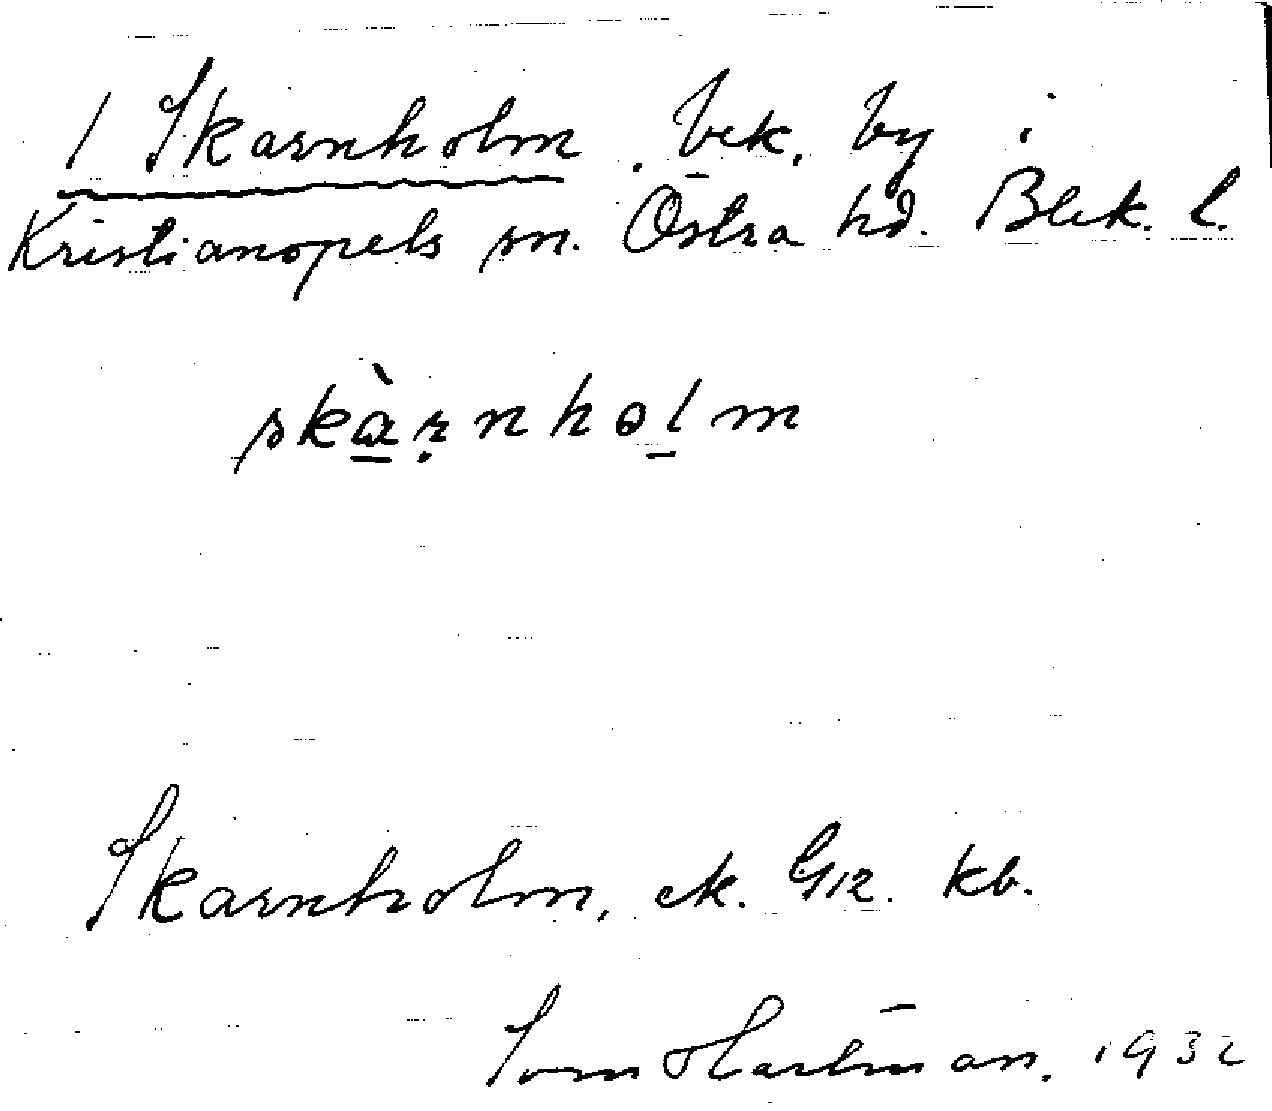 1 Skarnholm, bek. by i
Kristianopels sn. Östra hd. Blek. l.
skàṛnhol̠m
Skarnholm, ek. Gız. kb.
Hartman. 1932